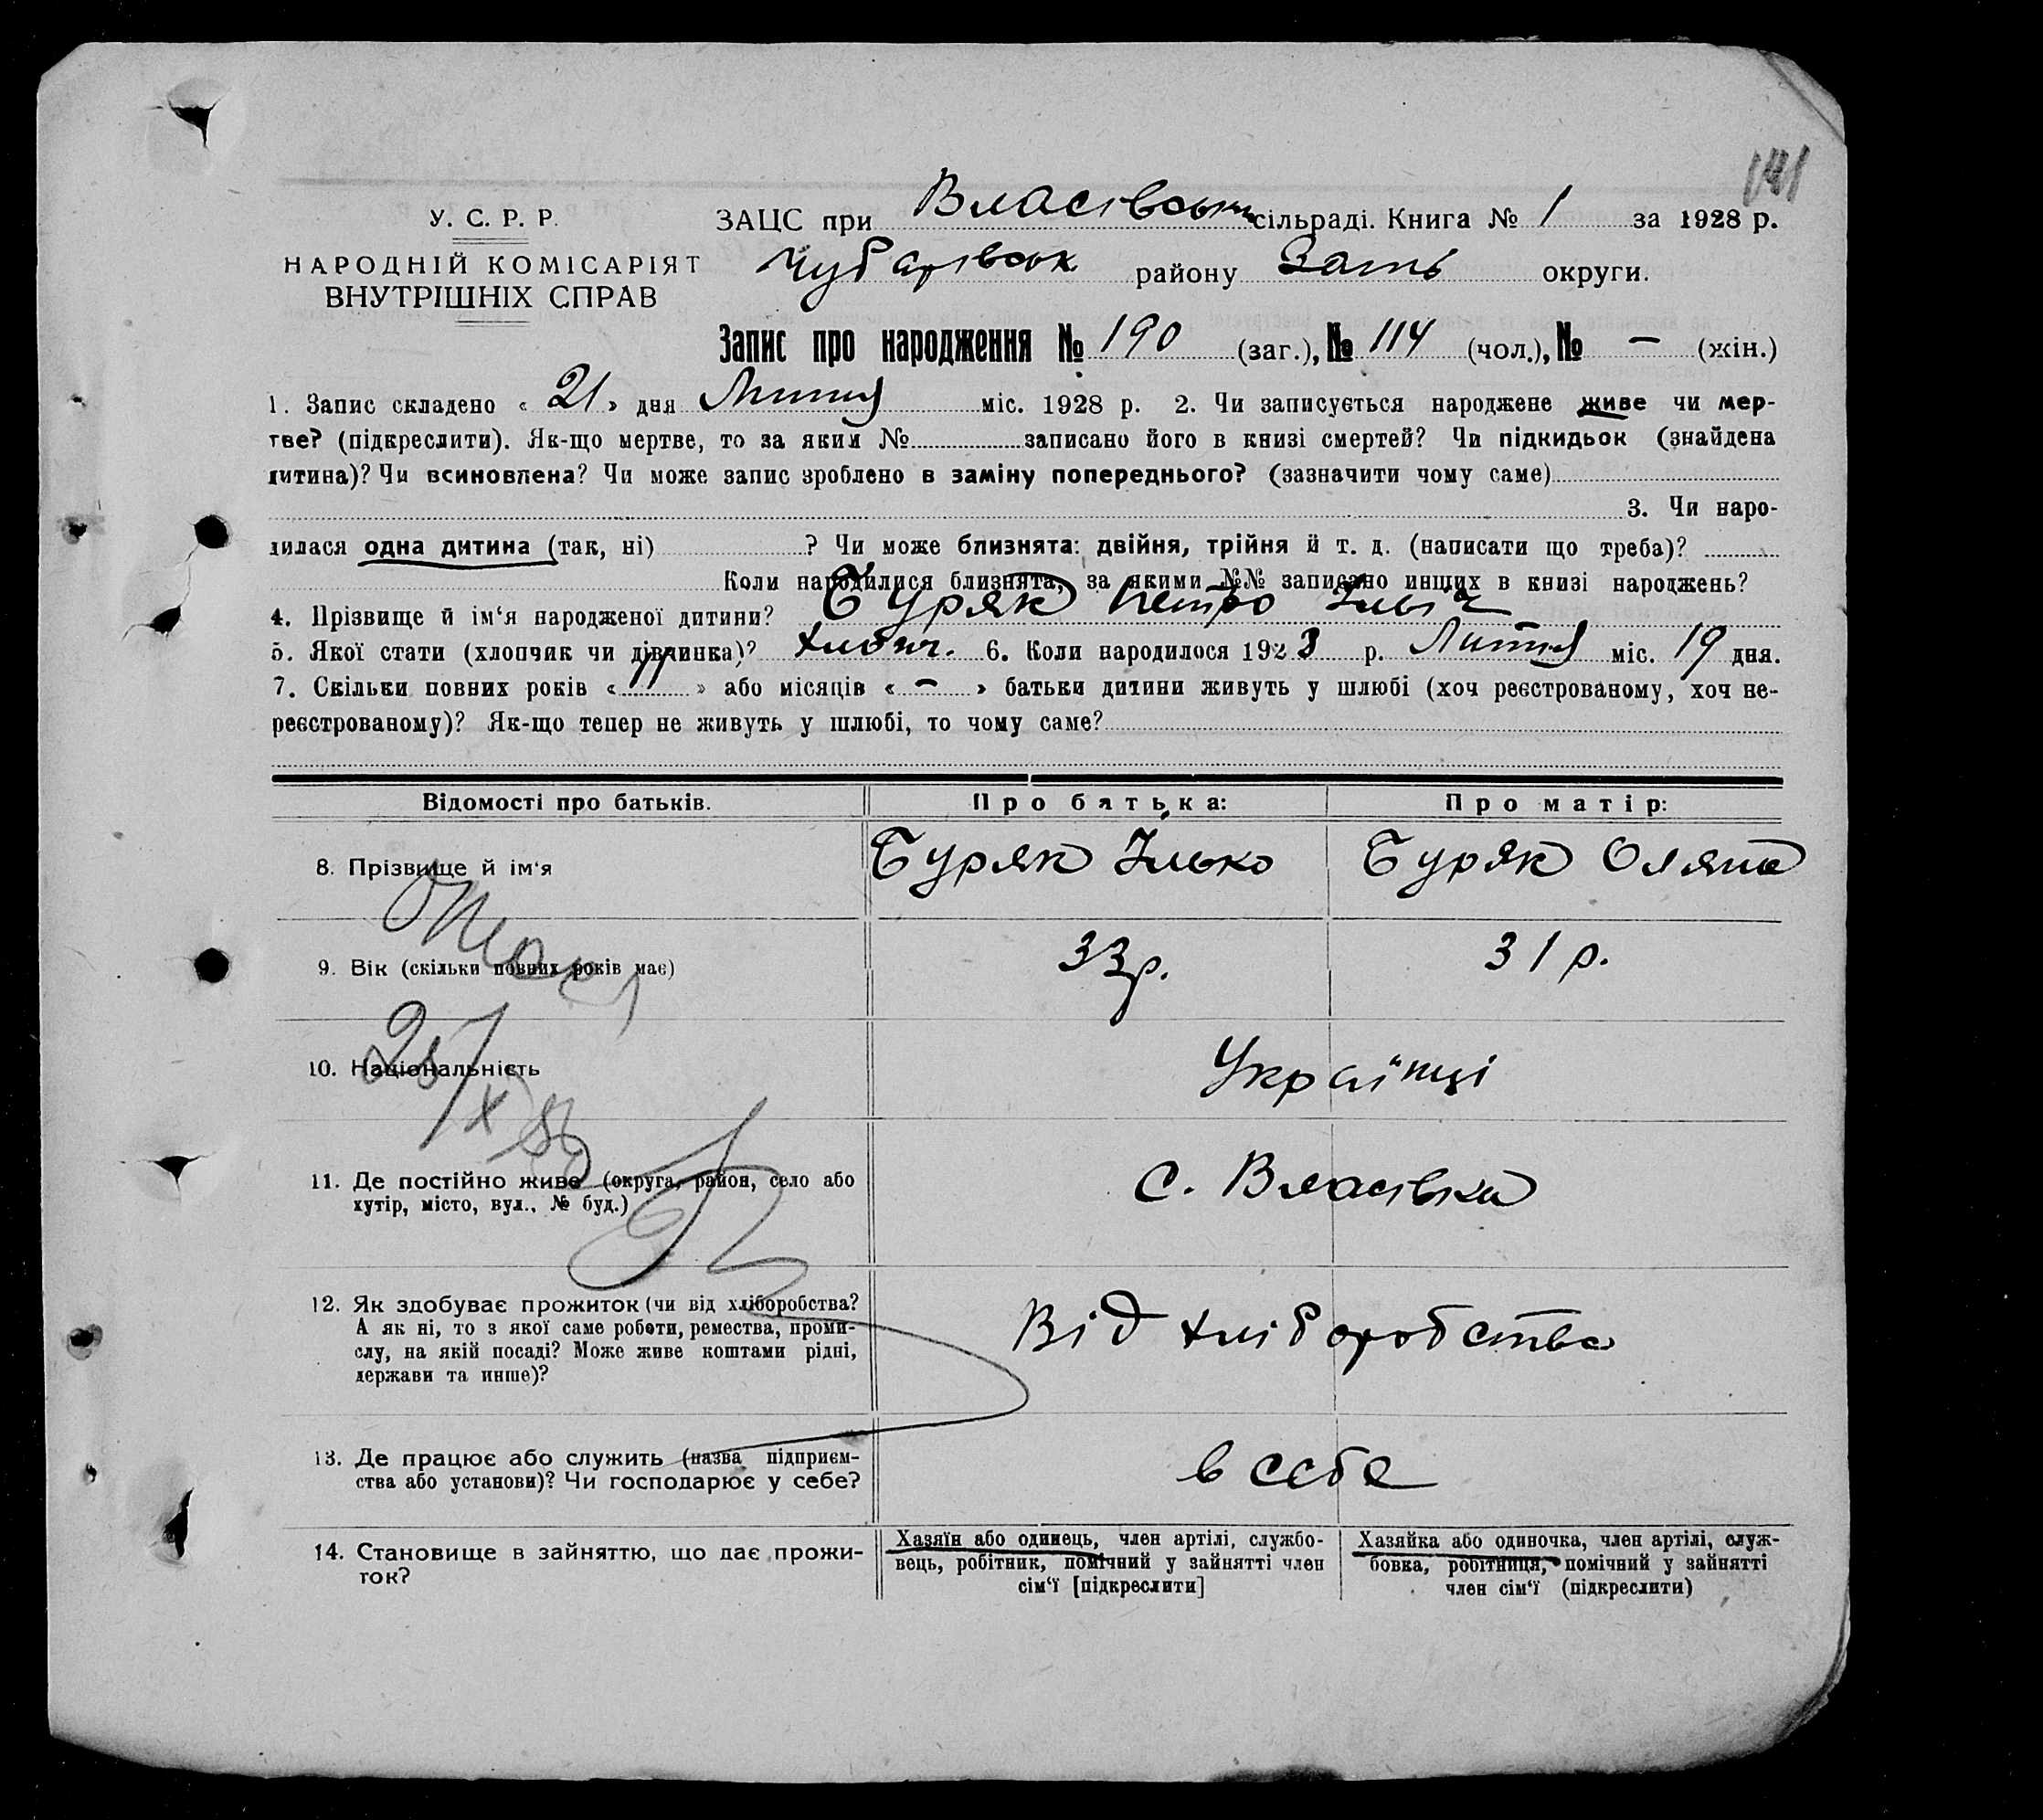 141
У. С. Р. Р.
НАРОДНІЙ КОМІСАРІЯТ
ВНУТРІШНІХ СПРАВ
ЗАЦС при Власівськ сільраді. Книга № 1 за 1928 р.
Чубарівськ району округи.
Запис про народження № 190 (заг.), № 114 (чол.), № — (жін.)
1. Запис складено « 21 » дня Липня міс. 1928 р. 2. Чи записується народжене живе чи мер-
тве? (підкреслити). Як-що мертве, то за яким № записано його в книзі смертей? Чи підкидьок (знайдена
дитина)? Чи всиновлена? Чи може запис зроблено в заміну попереднього? (зазначити чому саме)
3. Чи наро-
дилася одна дитина (так, ні) ? Чи може близнята: двійня, трійня й т. д. (написати що треба)?
Коли народилися близнята, за якими №№ записано инших в книзі народжень?
4. Прізвище й ім'я народженої дитини? Буряк Петро Ільіч
5. Якої стати (хлопчик чи дівчинка)? хлопч. 6. Коли народилося 1928 р. Липня міс. 19 дня.
7. Скільки повних років « 11 » або місяців « — » батьки дитини живуть у шлюбі (хоч реєстрованому, хоч не-
реєстрованому)? Як-що тепер не живуть у шлюбі, то чому саме?
Відомості про батьків. Про батька: Про матір:
8. Прізвище й ім'я Буряк Ілько Буряк Оляна
9. Вік (скільки повних років має) 33р. 31 р.
10. Національність Українці
11. Де постійно живе (округа, район, село або
хутір, місто, вул., № буд.) с. Власівка
12. Як здобуває прожиток (чи від хліборобства?
А як ні, то з якої саме роботи, ремества, проми-
слу, на якій посаді? Може живе коштами рідні,
держави та инше)? Від хліборобства
13. Де працює або служить (назва підприєм-
ства або установи)? Чи господарює у себе? в себе
14. Становище в зайняттю, що дає прожи-
ток?
Хазяїн або одинець, член артілі, службо-
вець, робітник, помічний у зайнятті член
сім'ї [підкреслити]
Хазяйка або одиночка, член артілі, служ-
бовка, робітниця, помічний у зайнятті
член сім'ї (підкреслити)